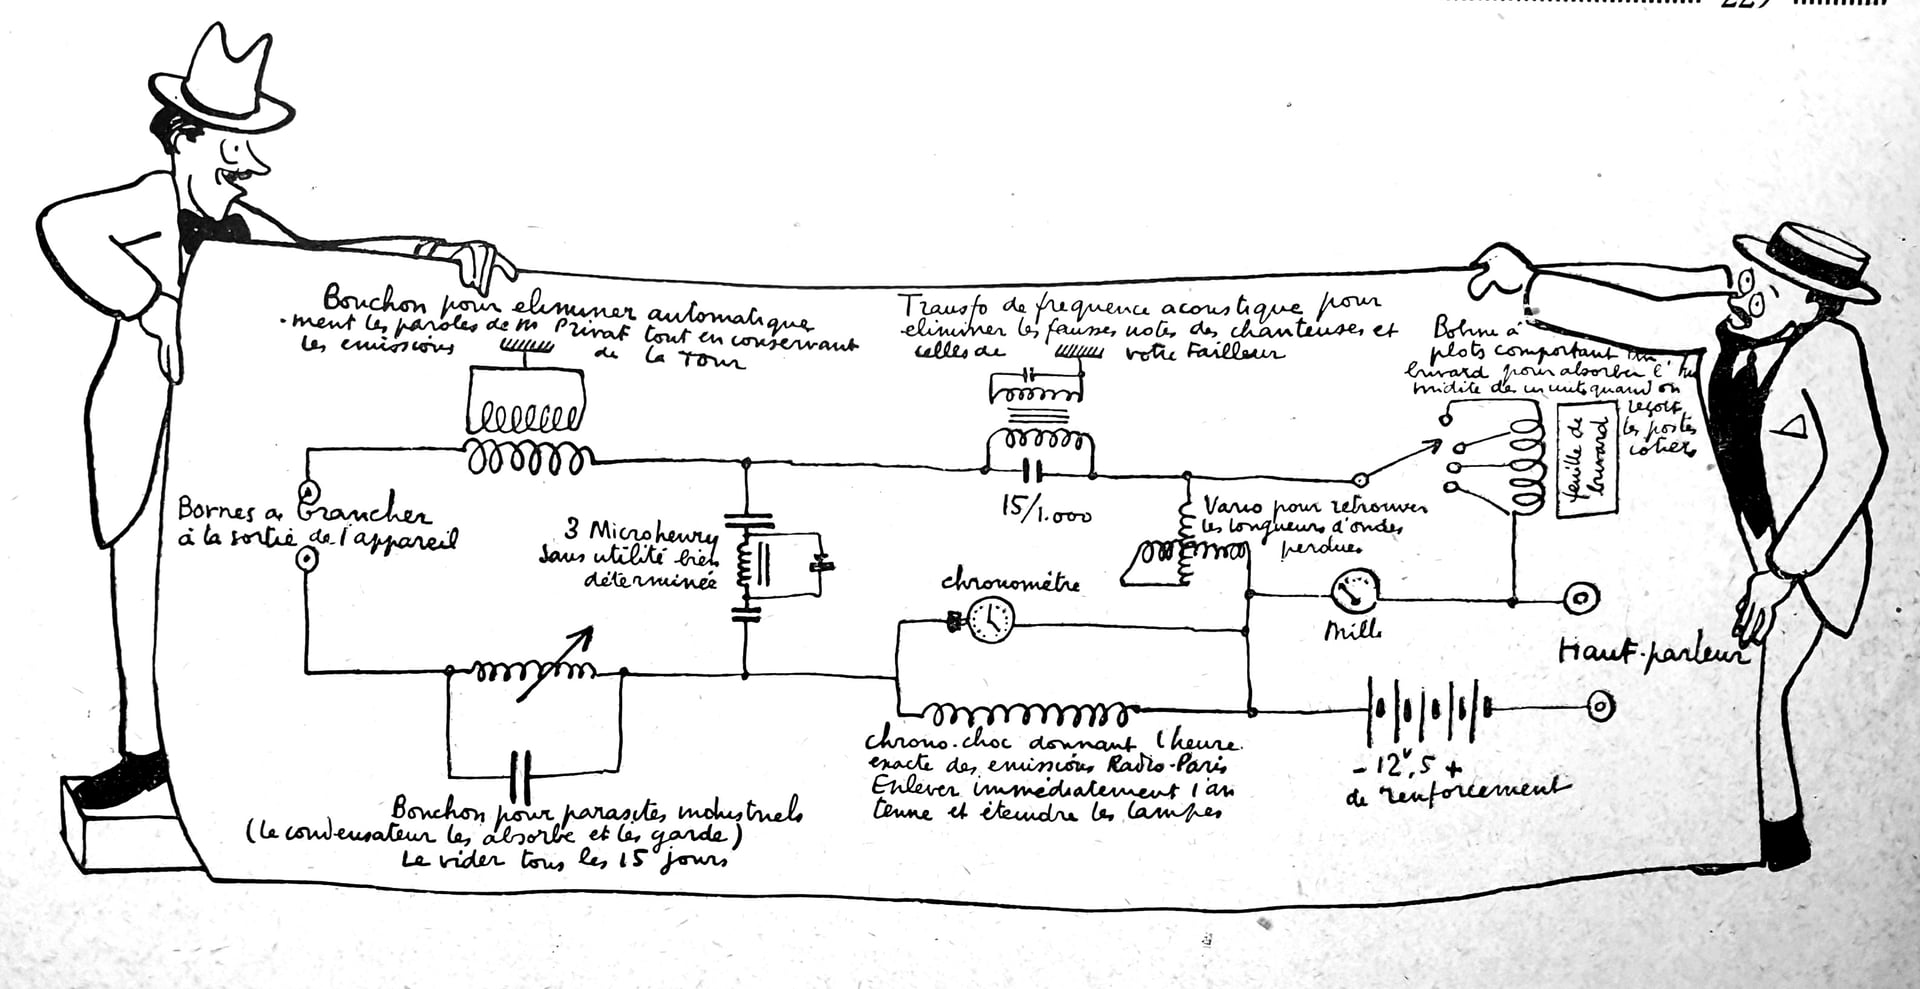 229
Bouchon pour eliminer automatique
-ment les paroles de M Privat tout en conservant
les emissions de la Tour
Transfo de frequence acoustique pour
eliminer les fausses notes des chanteuses et
celles de votre tailleur
Bobine à
plots comportant un
buvard pour absorber l'hu
midité des circuits quand on
reçoit
les postes
cotiers
feuille de
buvard
Bornes a brancher
à la sortie de l'appareil
3 Microhenry
sans utilité bien
déterminée
15/1.000
Vario pour retrouver
les longueurs d'ondes
perdues
chronomètre
Milli
Haut-parleur
Bouchon pour parasites industriels
(le condensateur les absorbe et les garde)
Le vider tous les 15 jours
chrono-choc donnant l'heure
exacte des emissions Radio-Paris
Enlever immédiatement l'an
tenne et éteindre les lampes
- 12v,5 +
de renforcement